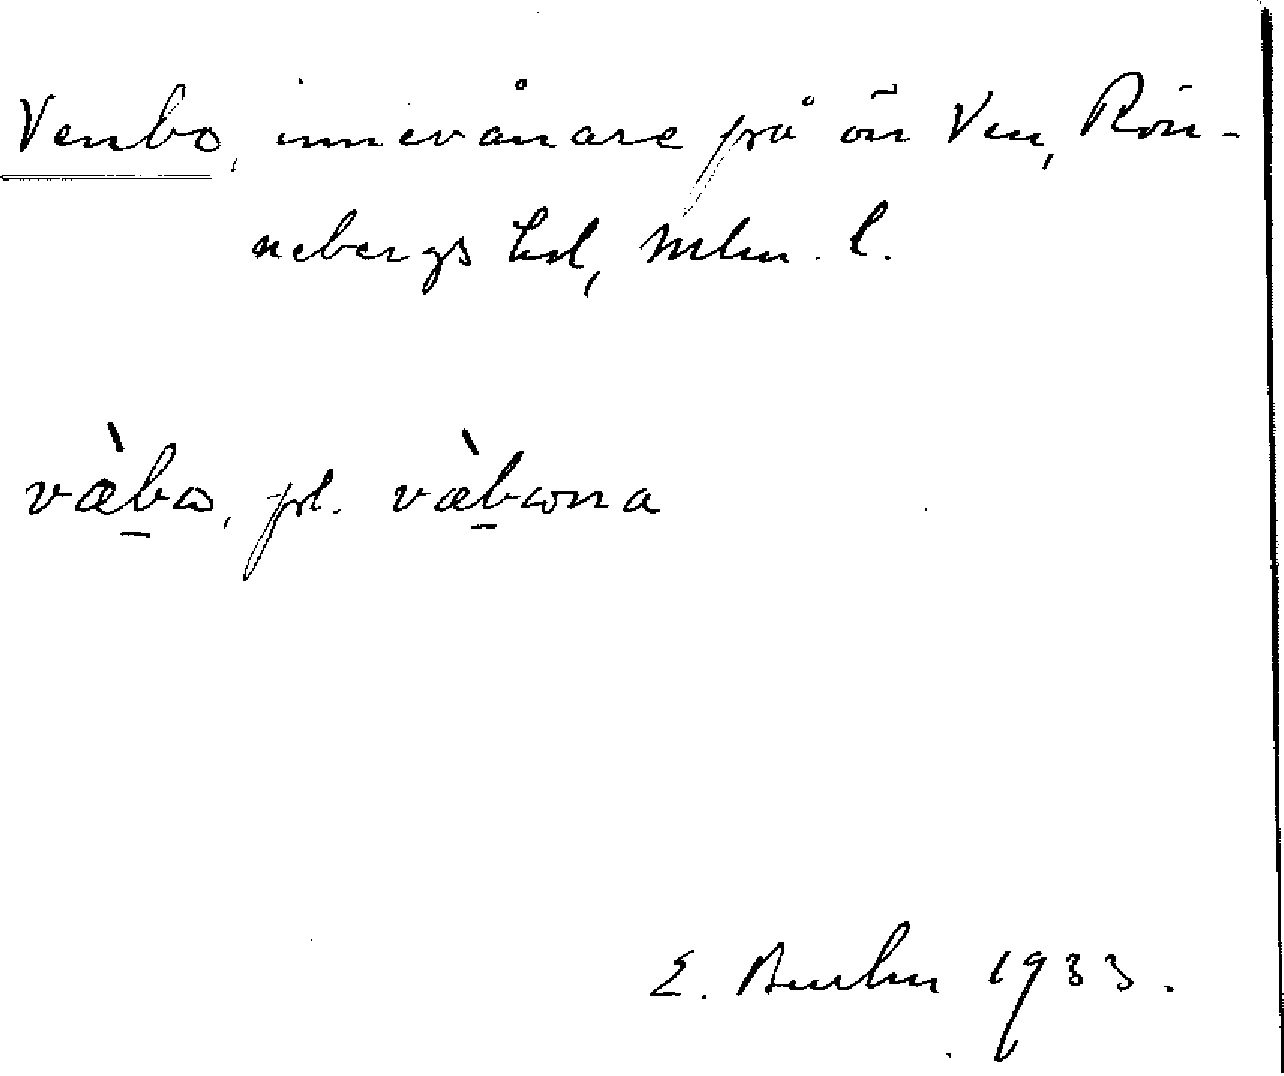 Venbo, innevånare på ön Ven, Rön-
nebergs hd, Mlm. l.
væ̀bo, pl. væ̀bona
E. 1933.